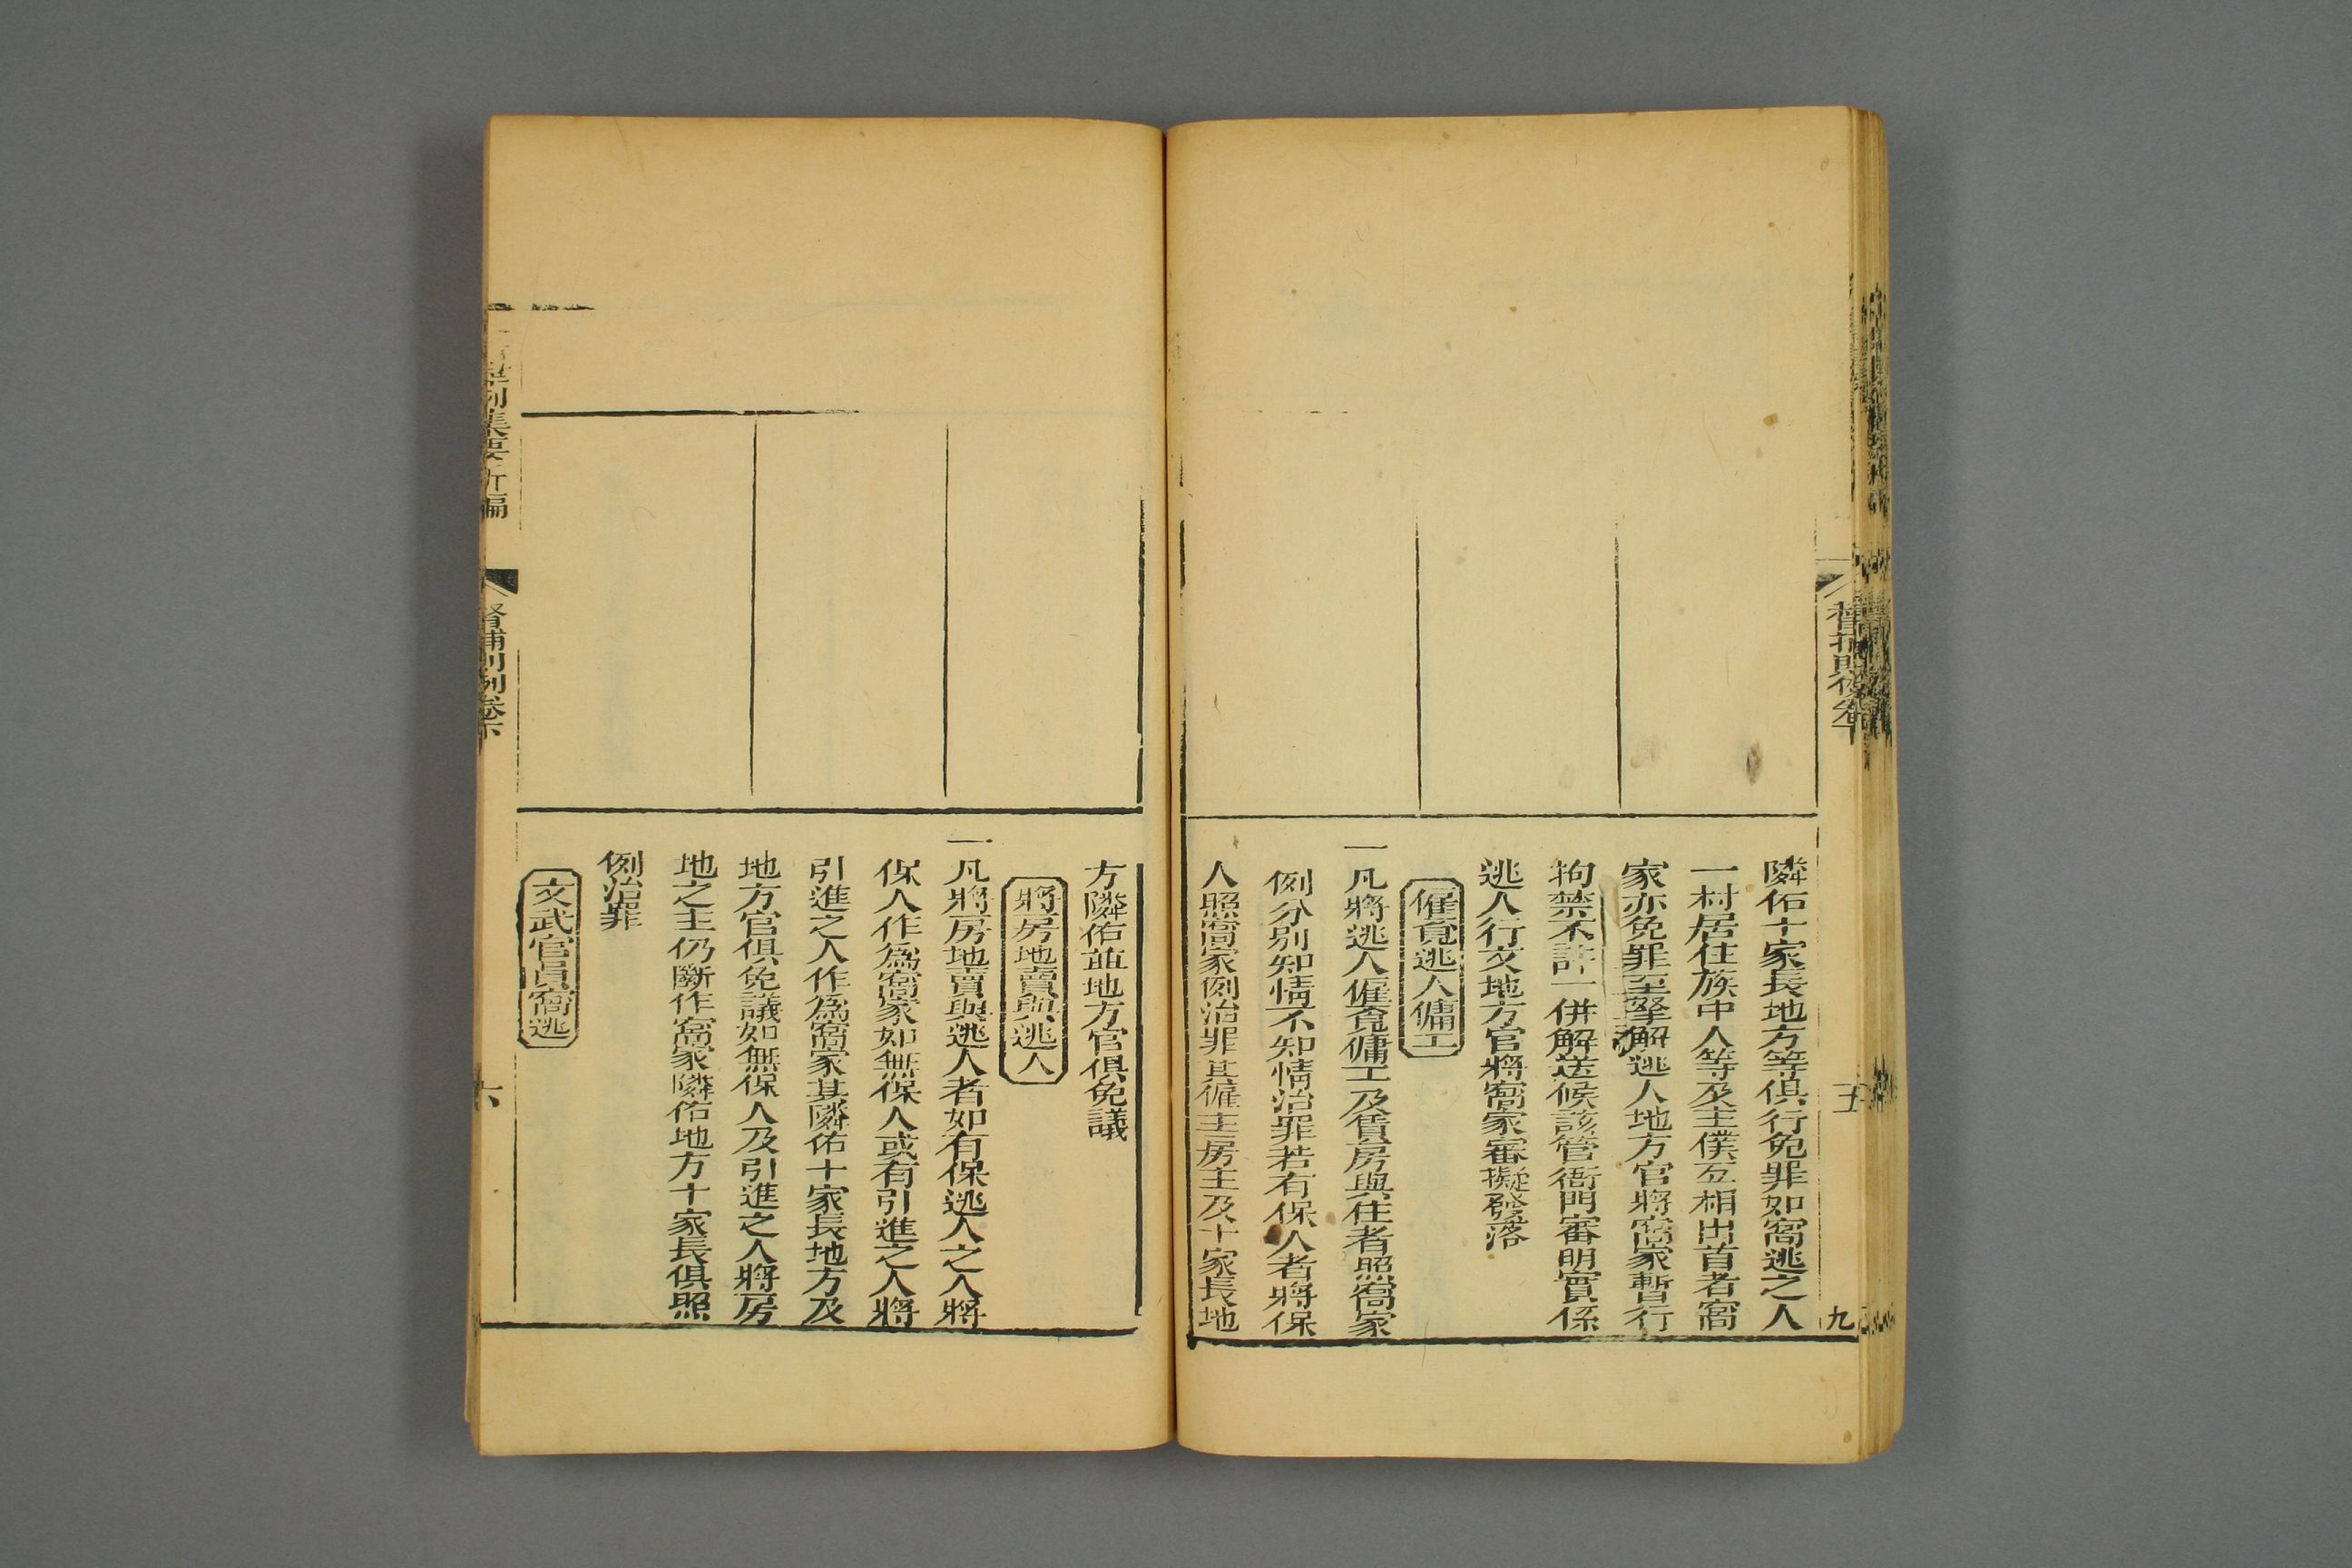 隣佑十家長地方等俱行免罪如窩逃之人
一村居住族中人等及主僕互相出首者窩
家亦免罪至拏解逃人地方官將窩家暫行
拘禁不許一併解送候該管衙門審明實係
逃人行文地方官將窩家審擬發落
僱覔逃人傭工
一凡將逃人僱覔傭工及賃房與住者照窩家
例分別知情不知情治罪若有保人者將保
人照窩家例治罪其僱主房主及十家長地
方隣佑並地方官俱免議
將房地賣與逃人
一凡將房地賣與逃人者如有保逃人之人將
保人作爲窩家如無保人或有引進之人將
引進之人作爲窩家其隣佑十家長地方及
地方官俱免議如無保人及引進之人將房
地之主仍斷作窩家隣佑地方十家長俱照
例治罪
文武官員窩逃
例集要新編
督捕則例卷下
六